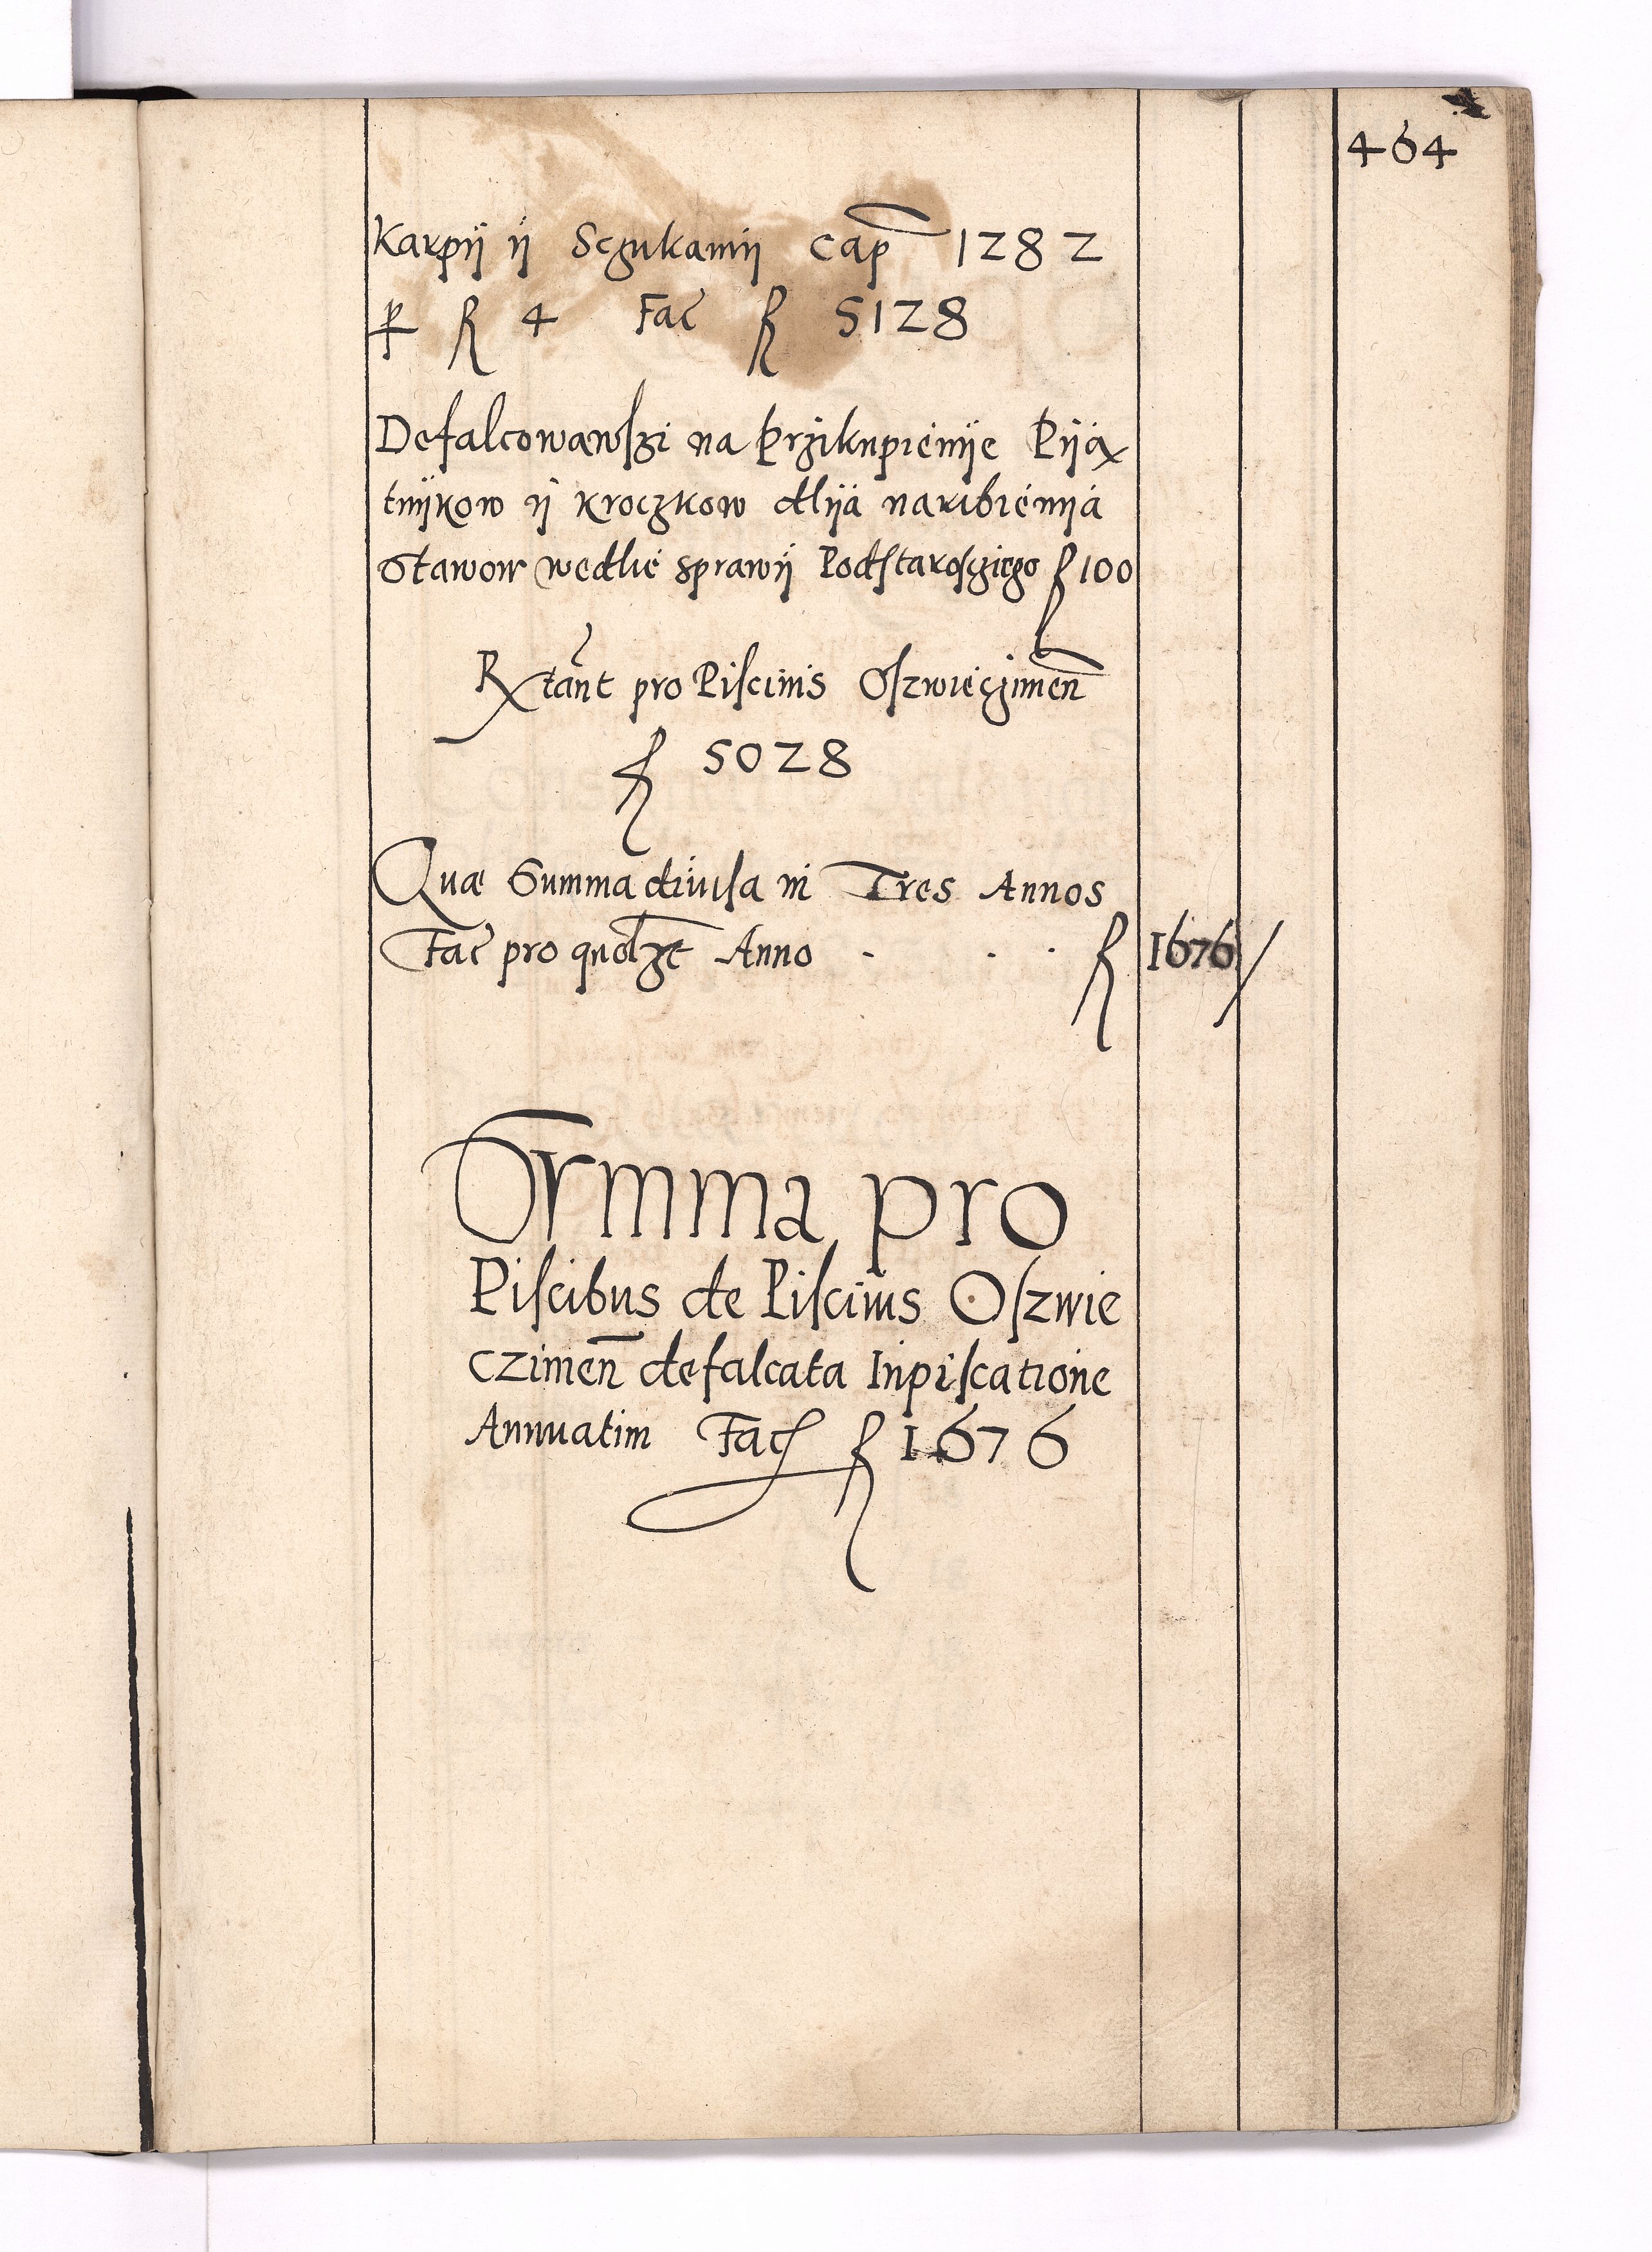 464
Karpij ij Sczukamij cap 1282
per fl 4 Fac fl 5128
Defalcowawszi na przikupienije Piją
tnijkow ij kroczkow dlijá naribienijá
Stawow wedlié sprawij Podstarosczięgo fl 100
Rxtant pro Piscinis Oszwieczimen
fl 5028
Quæ Summa diuisa in Tres Annos
Fac pro quolzt Anno - . . fl 1676/
Summa pro
Piscibus de Piscinis Oszwie
czimen defalcata Inpiscatione
Annuatim Fac fl 1676